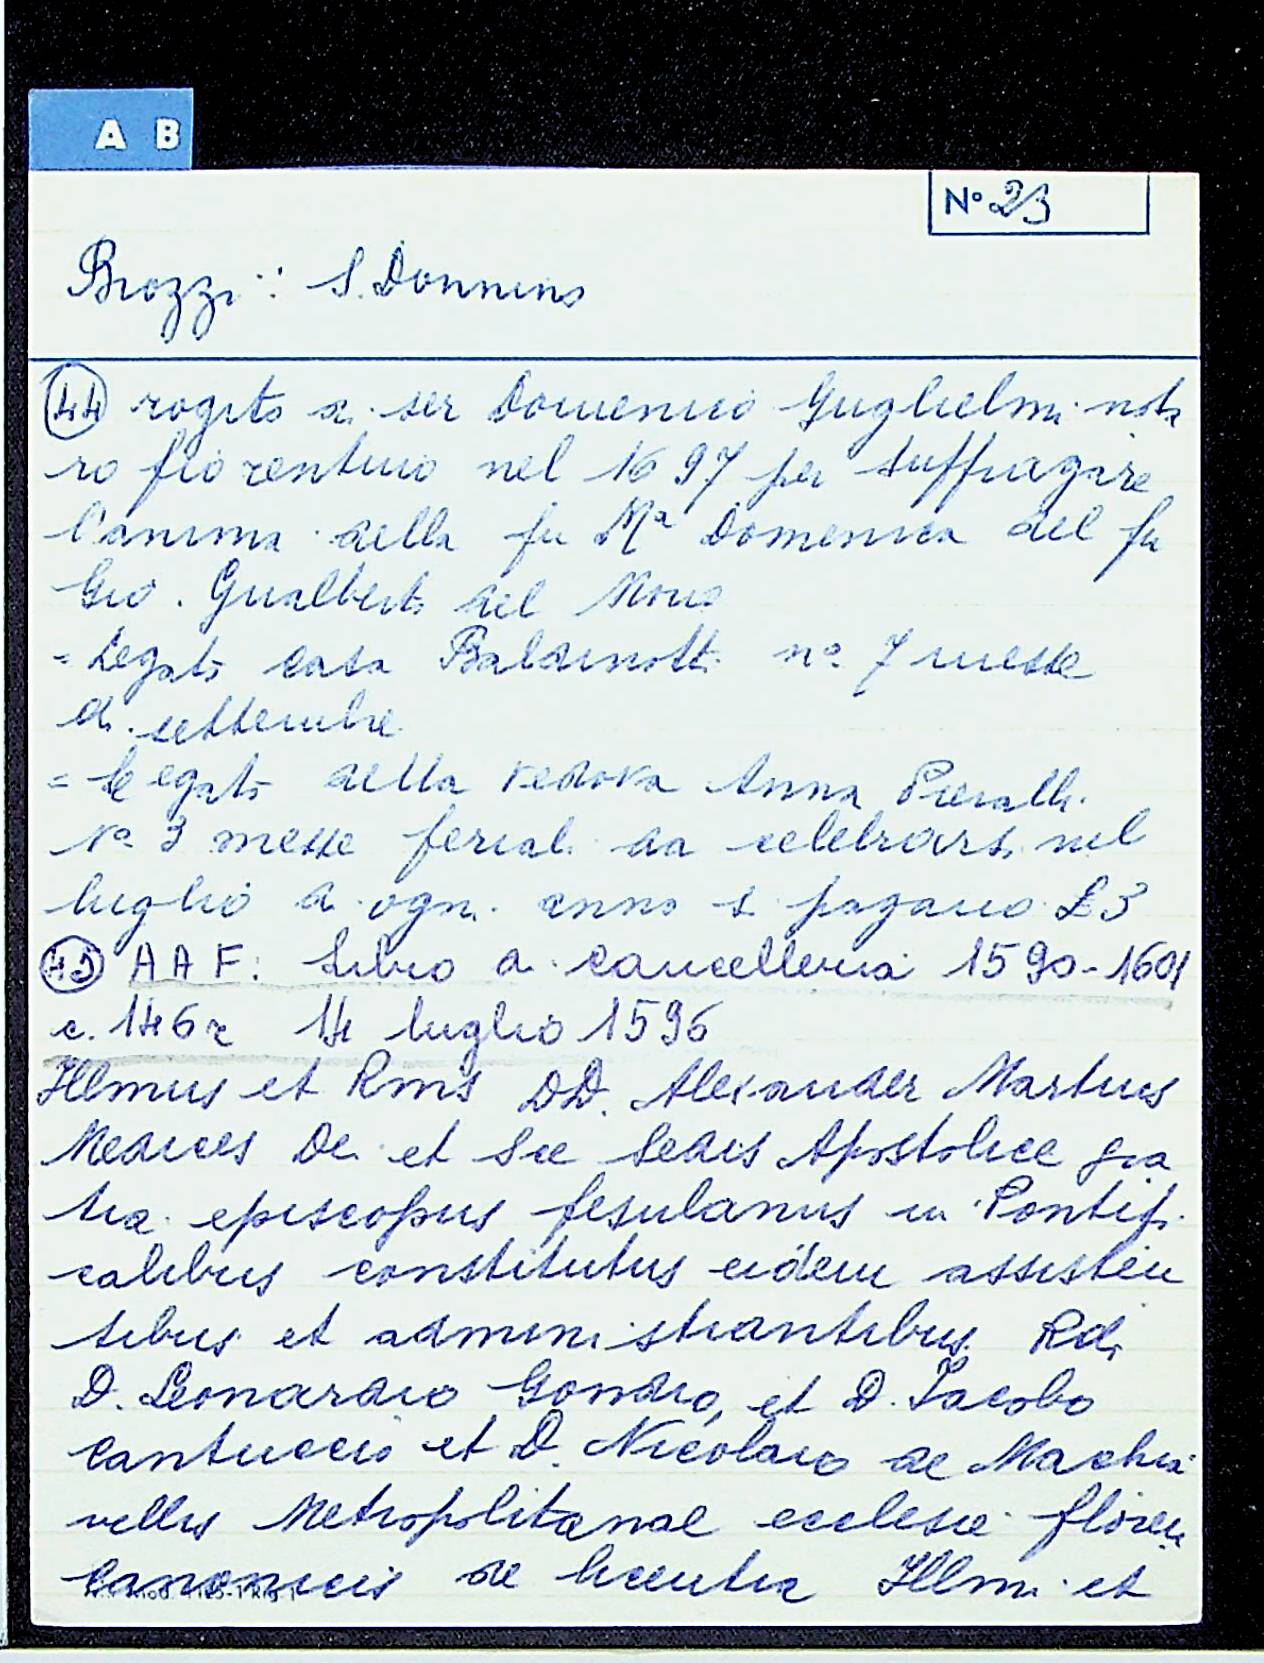 A B
N° 23
Brozzi: S. Donnino
44 rogito di ser Domenico Guglielmi nota
ro fiorentino nel 1697 per suffragare
l'anima della fu Mª Domenica del fu
Gio. Gualberto del Moro
= Legato casa Baldinotti n° 7 messe
di settembre
= Legato della vedova Anna Pieralli
N° 3 messe feriali da celebrarsi nel
luglio di ogni anno si pagano £3
45 AAF: Libro di cancelleria 1590-1601
c. 146r 14 luglio 1596
Illmus et Rms DD. Alexander Martius
Medices Dei et See Sedis Apostolice gra
tia episcopus fesulanus in Pontifi
calibus constitutus eidem assisten
tibus et administrantibus Rdi
D. Leonardo Gondio, et D. Jacobo
Cantuccio et D. Nicolaio de Machia
vellis Metropolitanae ecclesie floren
canonicis de licentia Illmi et